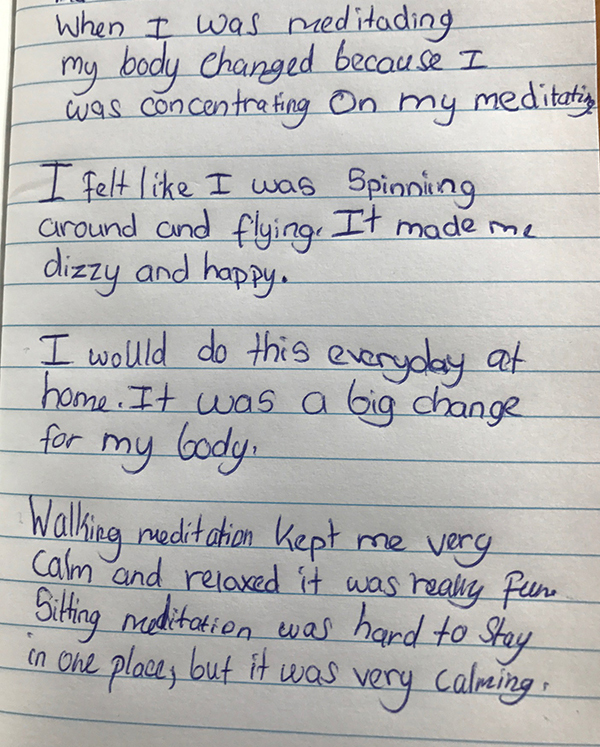 When I was meditading
my body changed because I
was concentrating On my meditating
I felt like I was Spinning
around and flying. It made me
dizzy and happy.
I would do this everyday at
home. It was a big change
for my body.
Walking meditation kept me very
calm and relaxed it was really fun.
Sitting meditation was hard to Stay
in one place, but it was very calming.